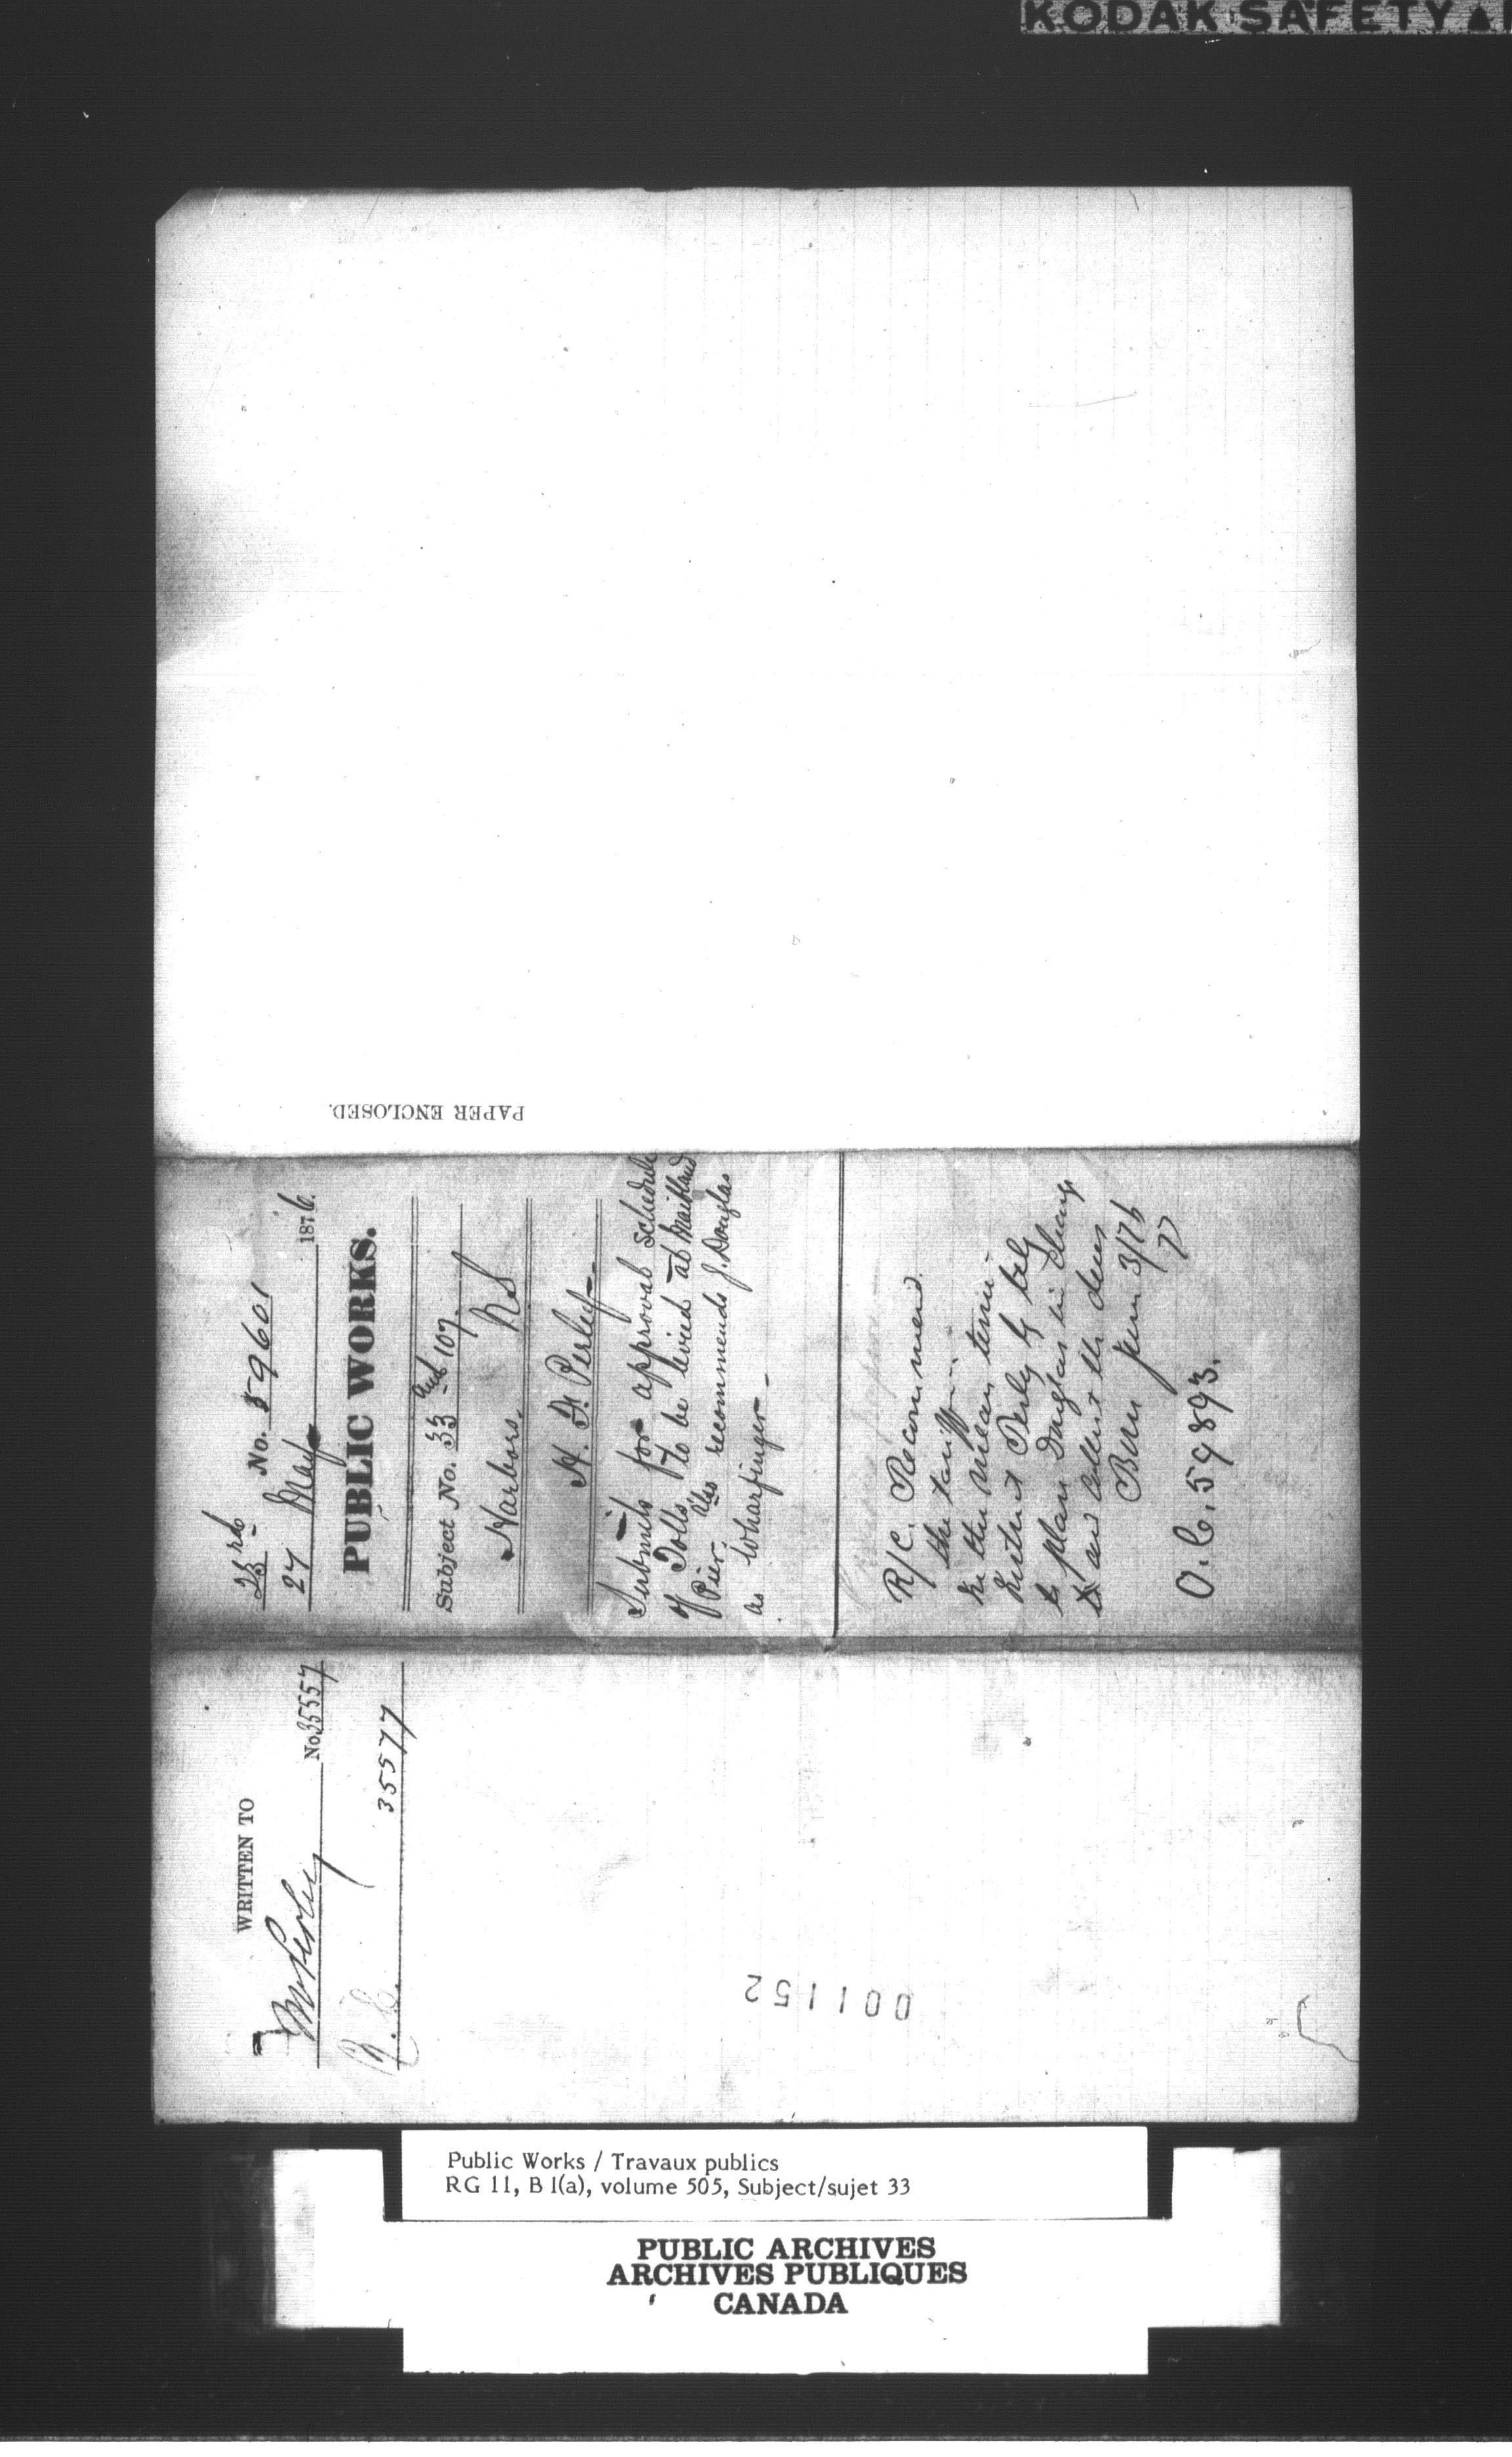 KODAK SAFETY
PAPER ENCLOSED.
23rd No. 59601
27 May 1876.
PUBLIC WORKS.
Subject No. 33 Sub 107.
Harbors. NS
H. F. Perley
Submits for approval Schedule
of Tolls to be levied at Maitland
Pier. Also recommends J. Douglas
as Wharfinger
R/C. Recommend
the tariff
In the mean time
instruct Perley by tel
to place Douglas in charge
and collect the dues
June 3/76
O.C. 59893.
WRITTEN TO
Mr Perley No 35557
R.C. 35577
001152
Public Works / Travaux publics
RG 11, B 1(a), volume 505, Subject/sujet 33
PUBLIC ARCHIVES
ARCHIVES PUBLIQUES
CANADA